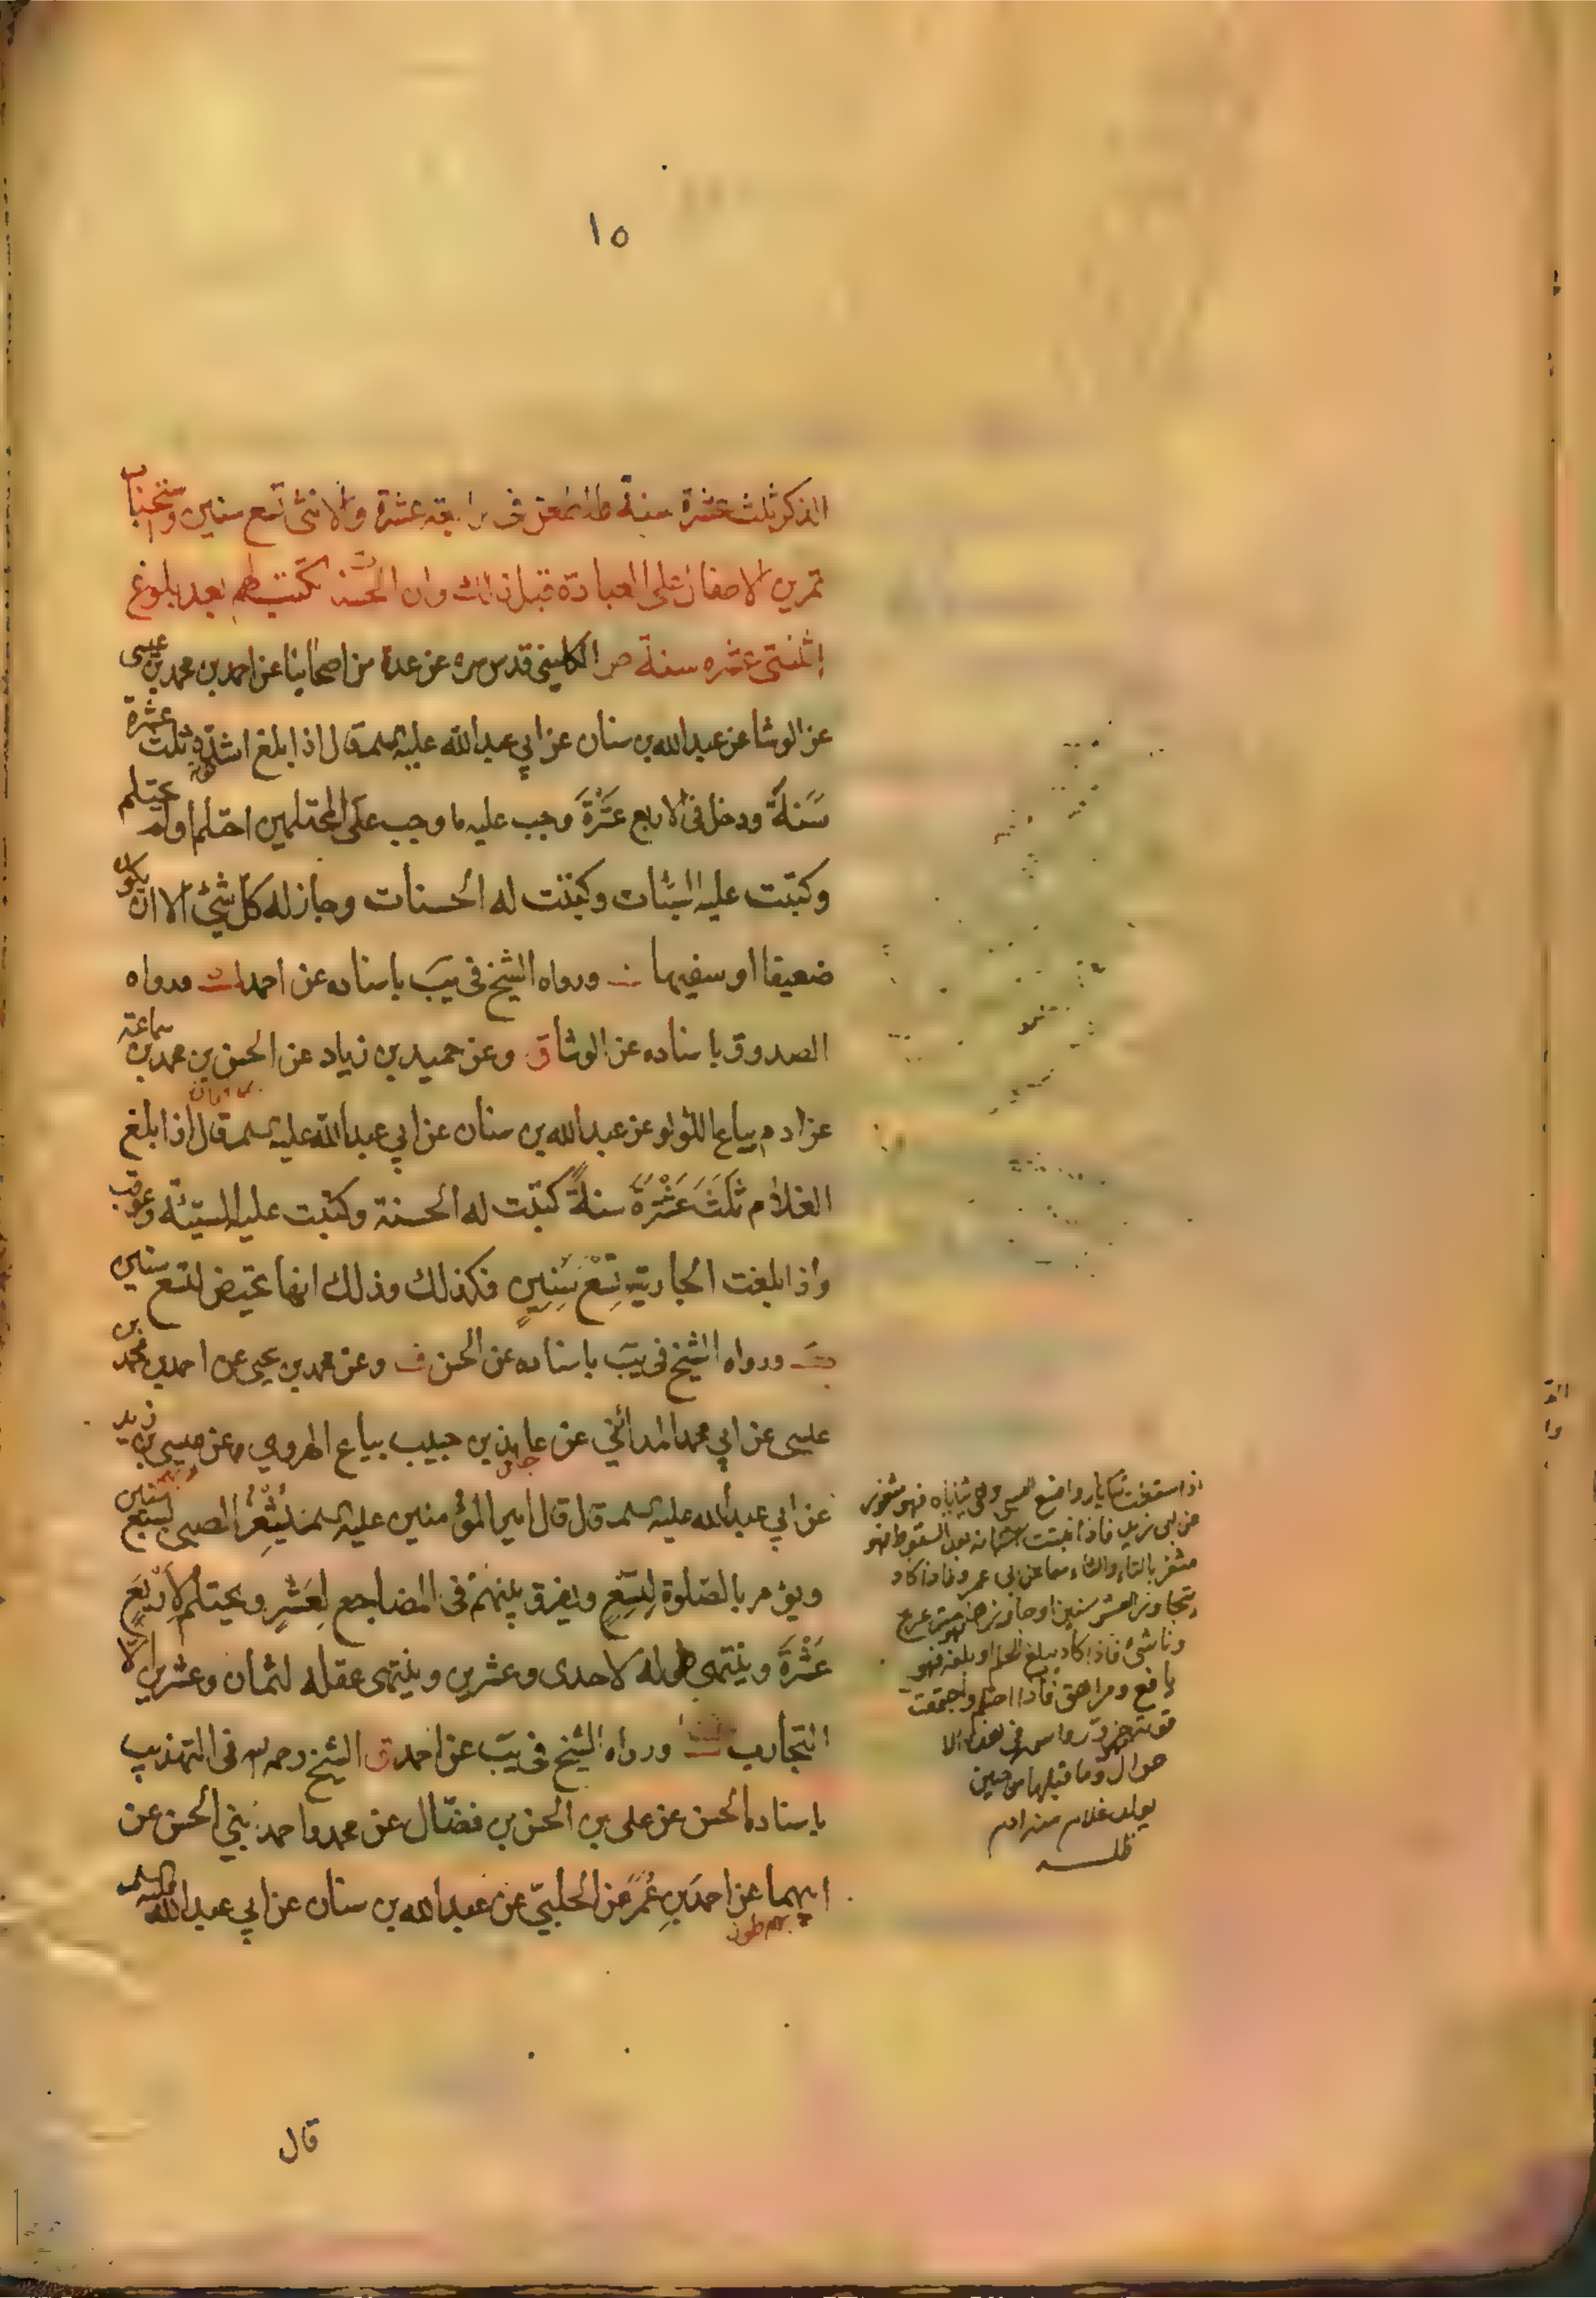 ١٥
الذكر ثلث عشرة سنة طاعنا في رابعة عشرة والانثى تسع سنين واستحباب
تمرين الاطفال على العبادة قبل ذلك وان الحسنة تكتب لهم بعد بلوغ
اثنتى عشره سنة الكليني قدس سره عن عدة من اصحابنا عن احمد بن محمد بن عيسى
عن الوشا عن عبدالله بن سنان عن ابي عبدالله عليه السلم قال اذا بلغ اشده ثلث عشرة
سَنةً ودخل في الاربع عَشْرَةَ وجب عليه ما وجب على المحتلمين احتلم او لم يحتلم
وكتبت عليه السيئات وكتبت له الحسنات وجاز له كلّ شيئ الا ان يكون
ضعيفا او سفيها ورواه الشيخ في يَبَ باسناده عن احمد ورواه
الصدوق باسناده عن الوشا وعن حميد بن زياد عن الحسن بن محمد بن سماعة
عن ادم بياع اللؤلؤ عن عبدالله بن سنان عن ابي عبدالله عليه السلم قال اذا بلغ
الغلام ثَلَثَ عَشْرَةَ سنةً كتبت له الحسنة وكتبت عليه السيّئة وعوقب
واذا بلغت الجارية تِسْعَ سَنِينٍ فكذلك وذلك انها تحيض لتسع سنين
ورواه الشيخ في يب باسناده عن الحسن وعن محمد بن يحيى عن احمد بن محمد بن
عيسى عن ابي محمد المدائني عن عايذ بن حبيب بياع الهروي وعن عيسى بن زيد
عن ابي عبدالله عليه السلم قال قال امير المؤمنين عليه السلم يُثْغِرُ الصبى لسبع سنين
ويؤمر بالصّلوة لِتِسْعٍ ويفرق بينهم في المضاجع لِعَشْرٍ ويحتلم لِاَرْبَعَ
عَشْرَةَ وينتهى طوله لاحدى وعشرين وينتهى عقله لثمان وعشرين الّا
التجارب ورواه الشيخ في يب عن احمد الشيخ رحمه الله في التهذيب
باسناده عن علي بن الحسن بن فضّال عن محمد واحمد بني الحسن عن
ابيهما عن احمد بنِ عُمَرَ عن الحلبيّ عن عبدالله بن سنان عن ابي عبدالله عليه السلم
قال
اذا سقطت رواضع الصبى وهي ثناياه فهو مثغور
عن ابى زيد فاذا نبتت اسنانه بعد السقوط فهو
مثغر بالتاء والثاء معا عن ابى عمرو فاذا كاد
يتجاوز العشر سنين او جاوزها فهو مترعرع
وناشئ فاذا كاد يبلغ الحلم او بلغه فهو
يافع ومراهق فاذا احتلم واجتمعت
قوته فهو حزور واسمه في هذه الا
حوال وما قبلها من حين
يولد غلام